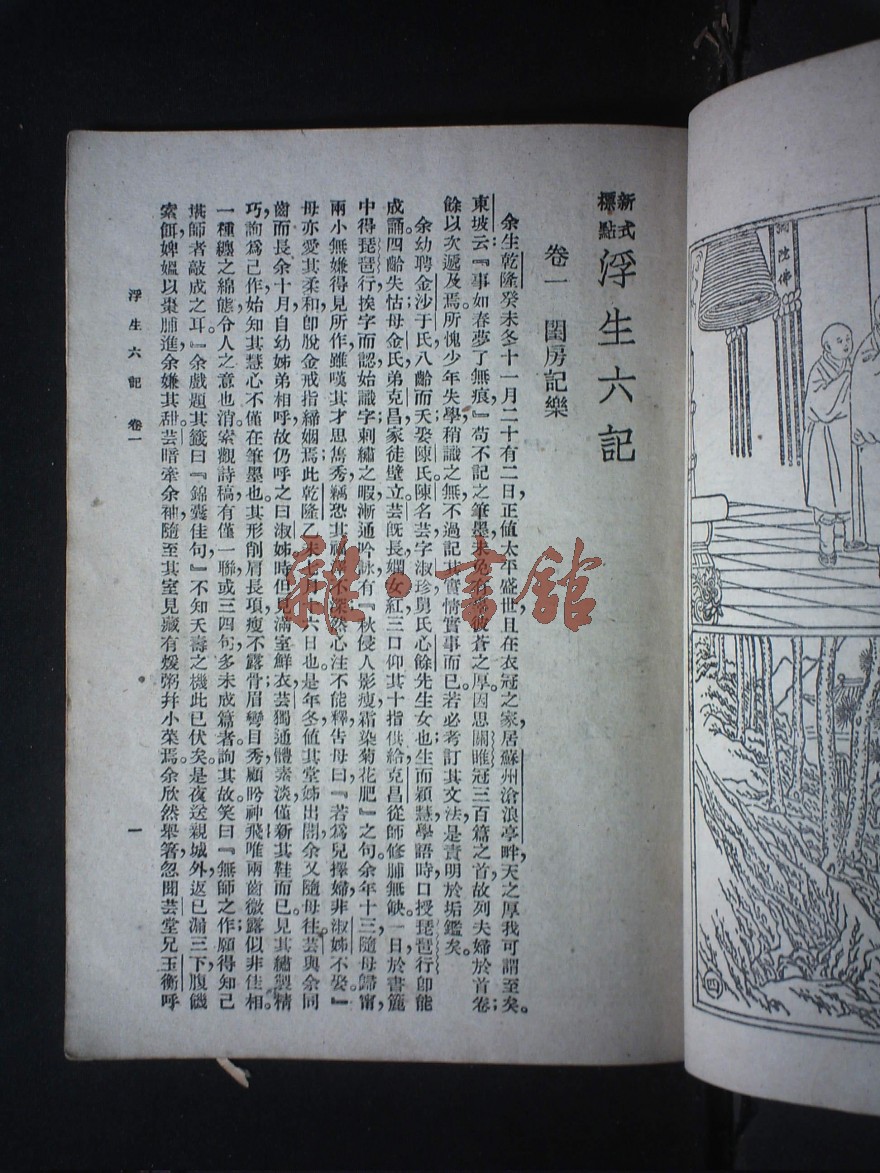 新式標點 浮生六記
卷一 閨房記樂
余生乾隆癸未冬十一月二十有二日,正值太平盛世,且在衣冠之家,居蘇州滄浪亭畔,天之厚我可謂至矣。
東坡云『事如春夢了無痕』苟不記之筆墨,未免有彼蒼之厚。因思關雎冠三百篇之首,故列夫婦於首卷;
餘以次遞及焉。所愧少年失學,稍識之無,不過記其實情實事而已。若必考訂其文法,是責明於垢鑑矣。
余幼聘金沙于氏,八齡而夭;娶陳氏。陳名芸,字淑珍,舅氏心餘先生女也。生而穎慧,學語時,口授琵琶行,卽能
成誦。四齡失怙;母金氏,弟克昌,家徒壁立。芸旣長,嫻女紅,三口仰其十指供給;克昌從師修脯無缺。一日,於書簏
中得琵琶行,挨字而認,始識字。刺繡之暇,漸通吟詠,有『秋侵人影瘦,霜染菊花肥』之句。余年十三,隨母歸甯,
兩小無嫌,得見所作,雖嘆其才思雋秀,竊恐其福澤不深;然心注不能釋,告母曰『若爲兒擇婦,非淑姊不娶。』
母亦愛其柔和,卽脫金戒指締姻焉。此乾隆乙未七月十六日也。是年冬,值其堂姊出閣,余又隨母往。芸與余同
齒而長余十月,自幼姊弟相呼,故仍呼之曰淑姊。時但見滿室鮮衣,芸獨通體素淡,僅新其鞋而已。見其繡製精
巧,詢爲己作,始知其慧心不僅在筆墨也。其形削肩長項,瘦不露骨;眉彎目秀,顧盼神飛;唯兩齒微露,似非佳相。
一種纏之綿態,令人之意也消。索觀詩稿,有僅一聯,或三四句,多未成篇者。詢其故,笑曰『無師之作,願得知己
堪師者敲成之耳。』余戲題其籤曰『錦囊佳句。』不知夭壽之機,此已伏矣。是夜,送親城外,返已漏三下,腹饑
索餌,婢嫗以棗脯進,余嫌其甜。芸暗牽余神,隨至其室,見藏有煖粥幷小菜焉。余欣然舉箸,忽聞芸堂兄玉衡呼
浮生六記 卷一
一
雜·書館
院佛
四